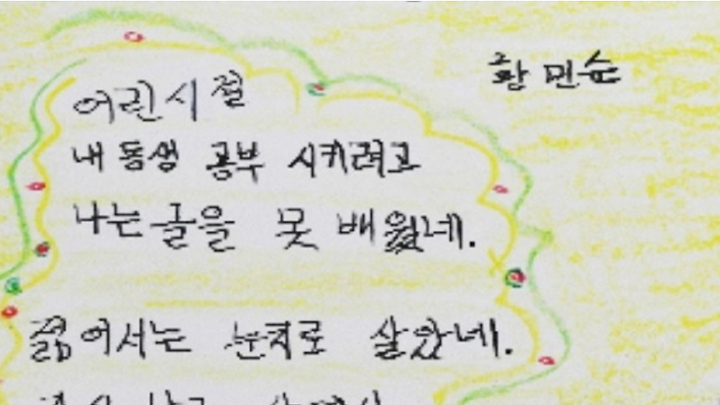 황 민순
어린시절
내 동생 공부 시키려고
나는 글을 못 배웠네.
젊어서는 눈치로 살았네.